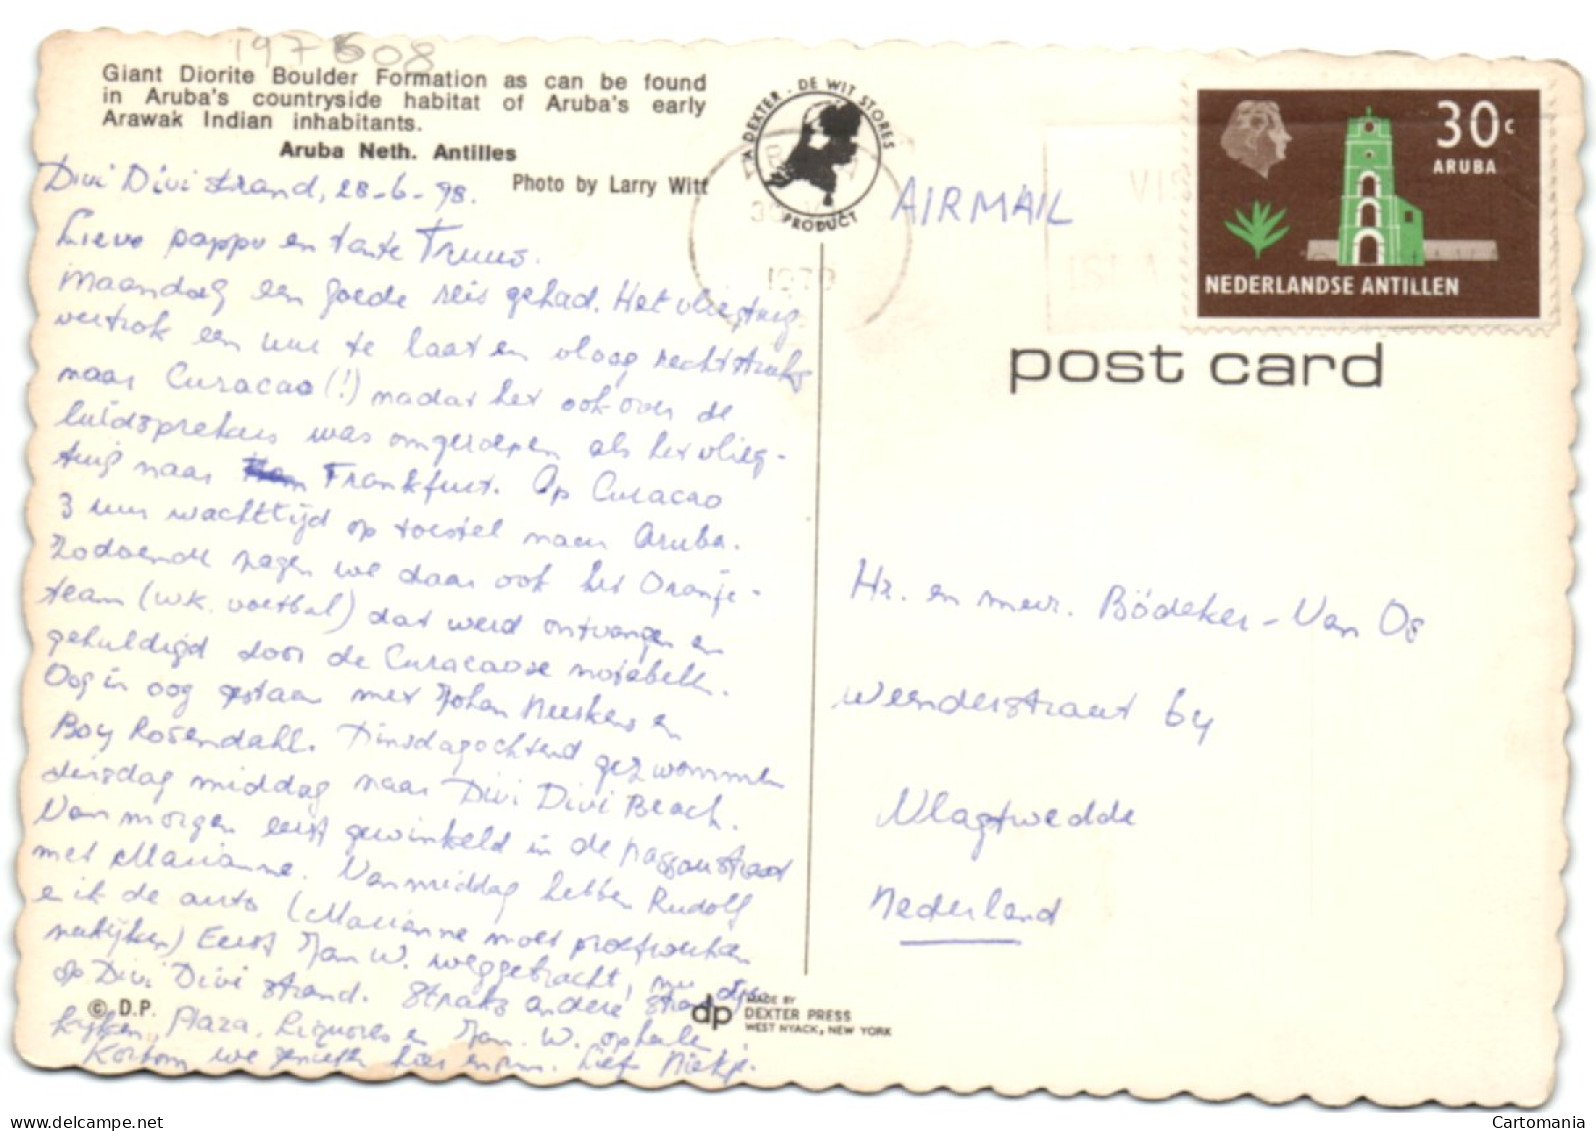 197508
Giant Diorite Boulder Formation as can be found
in Aruba's countryside habitat of Aruba's early
Arawak Indian inhabitants.
Aruba Neth. Antilles
Photo by Larry Witt
Divi Divi strand, 28-6-78.
Lieve pappa en tante Truus.
Maandag een goede reis gehad. Het vliegtuig
vertrok een uur te laat en vloog rechtstreeks
naar Curacao (!) nadat het ook over de
luidsprekers was omgeroepen als het vlieg-
tuig naar Frankfurt. Op Curacao
3 uur wachttijd op toestel naar Aruba.
Zodoende zagen we daar ook het Oranje-
team (w.k. voetbal) dat werd ontvangen en
gehuldigd door de Curacaose notabelen.
Oog in oog gestaan met Johan Neeskens en
Boy Rosendahl. Dinsdagochtend gezwommen
dinsdag middag naar Divi Divi Beach.
Vanmorgen eerst gewinkeld in de Nassaustraat
met Marianne. Vanmiddag hebben Rudolf
e ik de auto (Marianne moet proefwerken
nakijken) Eerst Jan W. weggebracht, nu
op Divi Divi strand. Straks andere
kijken, Plaza, Liquores en Jan. W. ophalen
Kortom we genieten hier enorm. Liefs
© D.P.
A DEXTER - DE WIT STORES
PRODUCT
30
1978
VIS
ISLA
AIRMAIL
30c
ARUBA
NEDERLANDSE ANTILLEN
post card
Hr. en mevr. Bödeker-Van Os
Wenderstraat 64
Vlagtwedde
Nederland
dp MADE BY
DEXTER PRESS
WEST NYACK, NEW YORK
Cartomania
www.delcampe.net